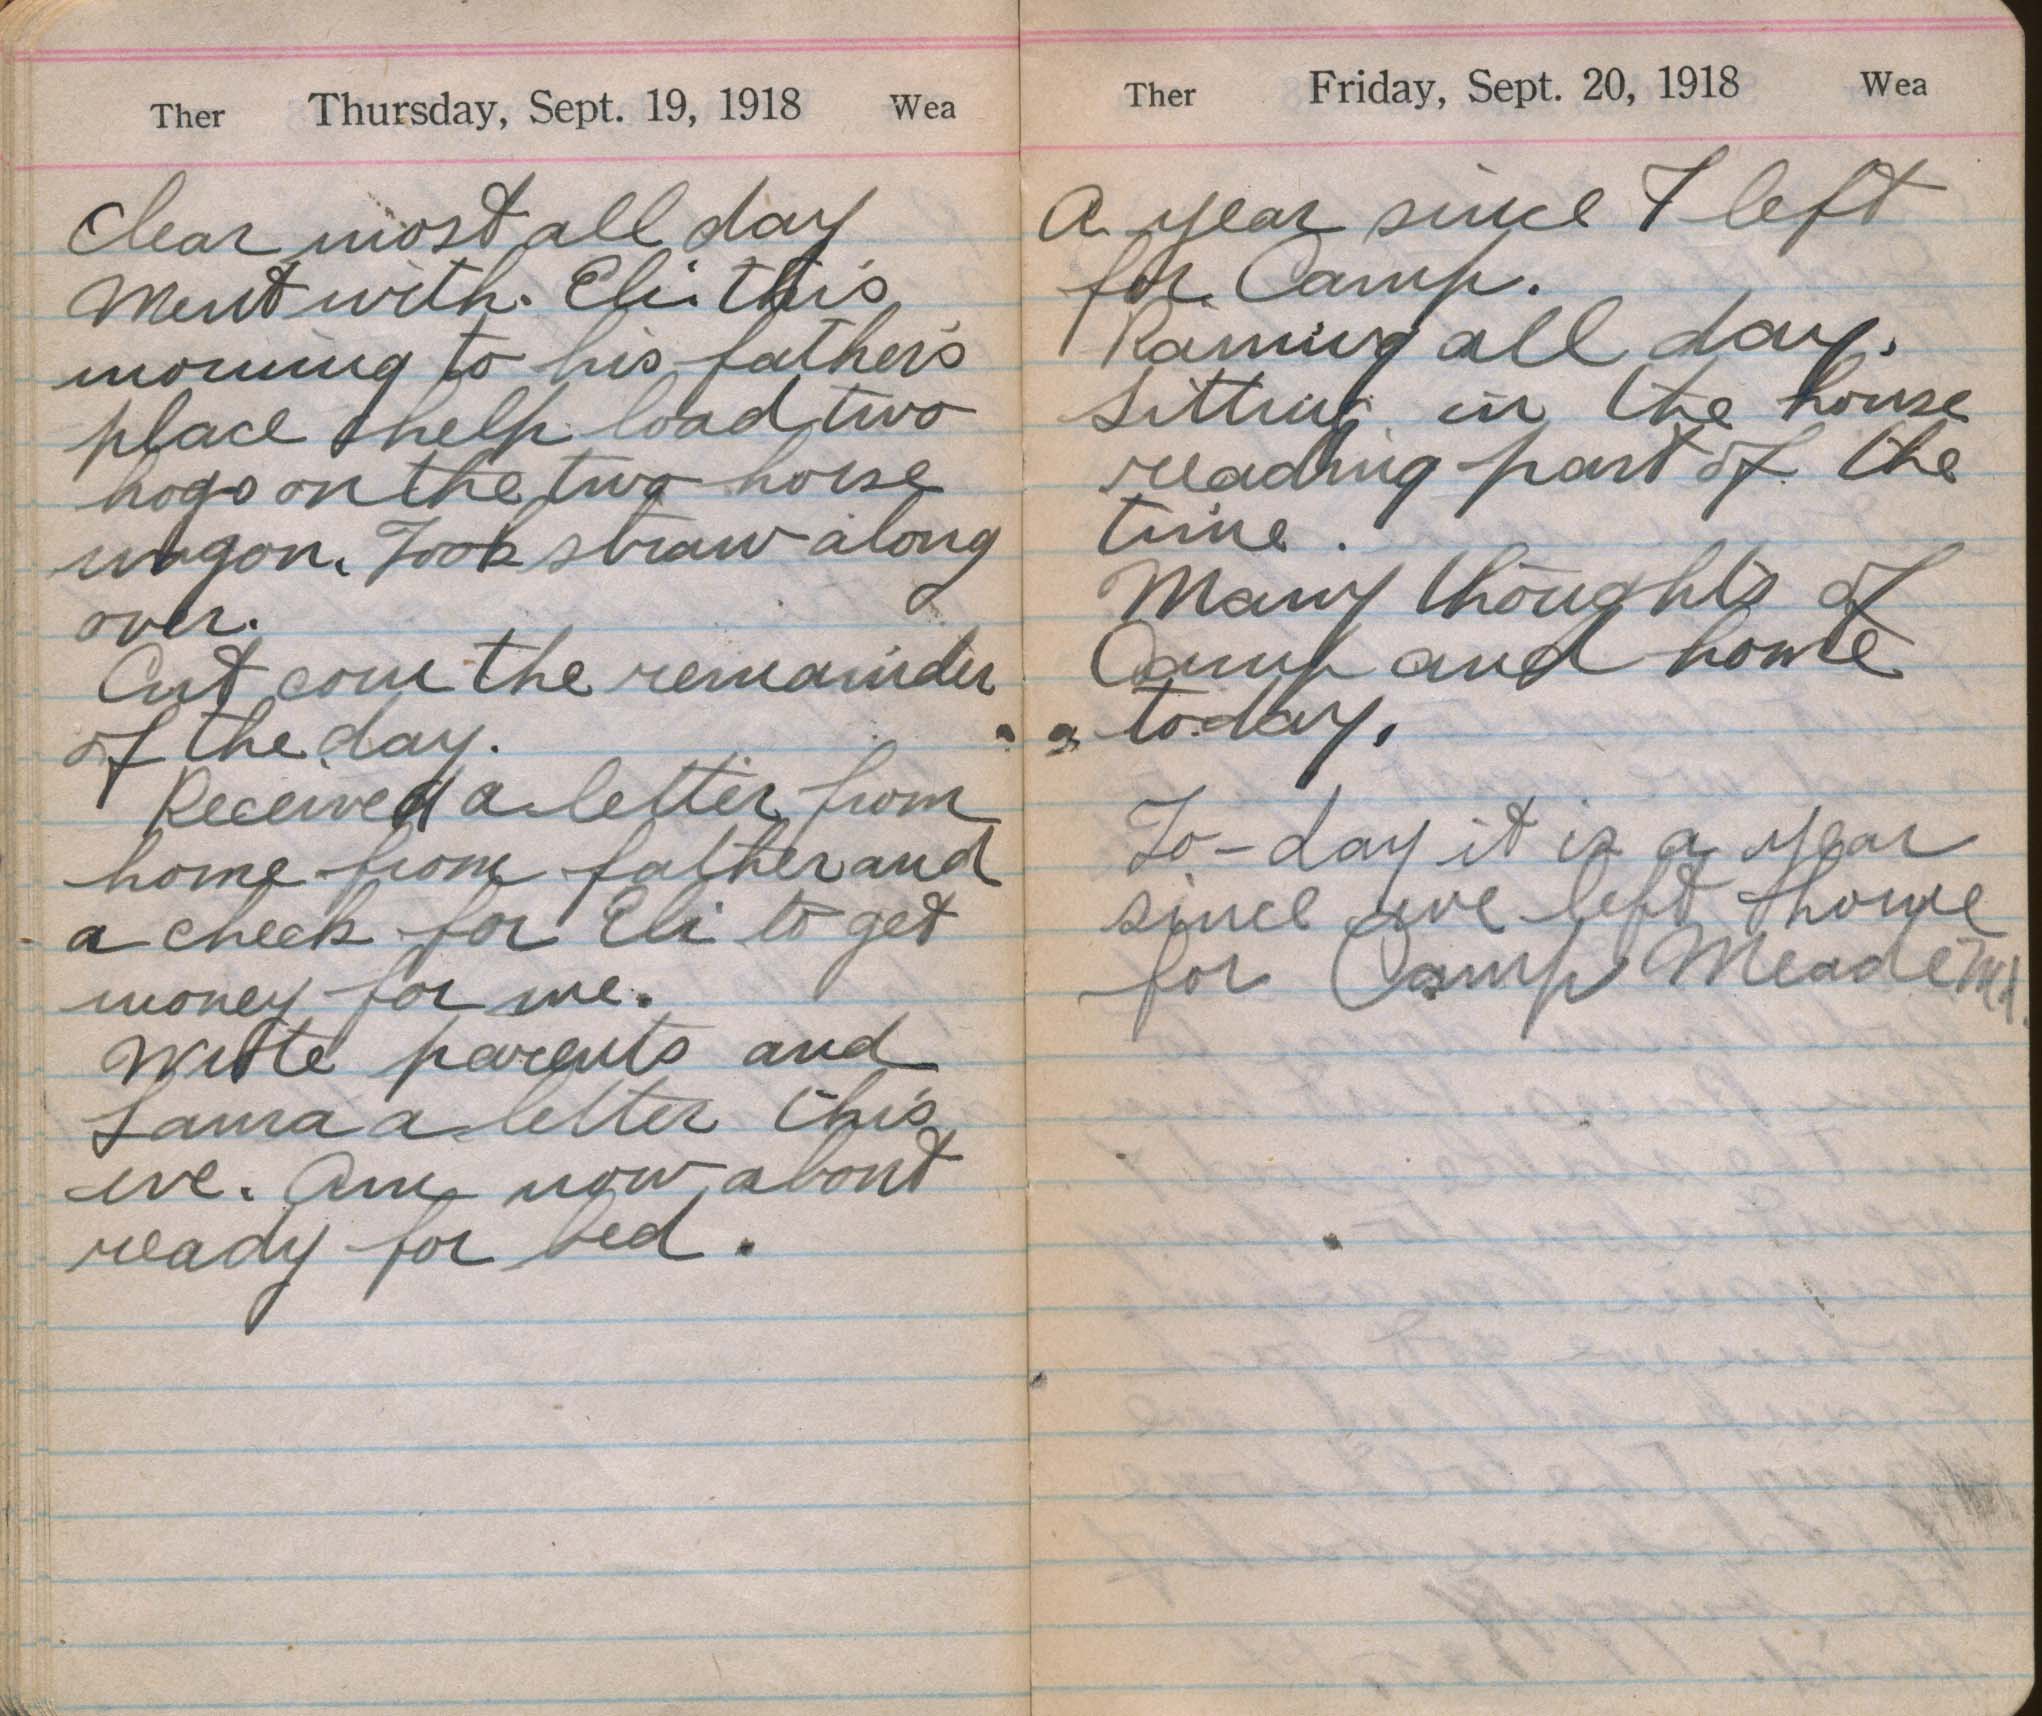 Ther Thursday, Sept. 19, 1918 Wea
Clear most all day
Went with. Eli this
morning to his father's
place & help load two
hogs on the two horse
wagon. Took straw along
over.
Cut corn the remainder
of the day.
Received a letter from
home from father and
a check for Eli to get
money for me.
Wrote parents and
Laura a letter this
eve. Am now about
ready for bed.
Ther Friday, Sept. 20, 1918 Wea
A year since I left
for Camp.
Raining all day.
Sitting in the house
reading part of the
time.
Many thoughts of
Camp and home
today.
To-day it is a year
since we left home
for Camp Meade Md.